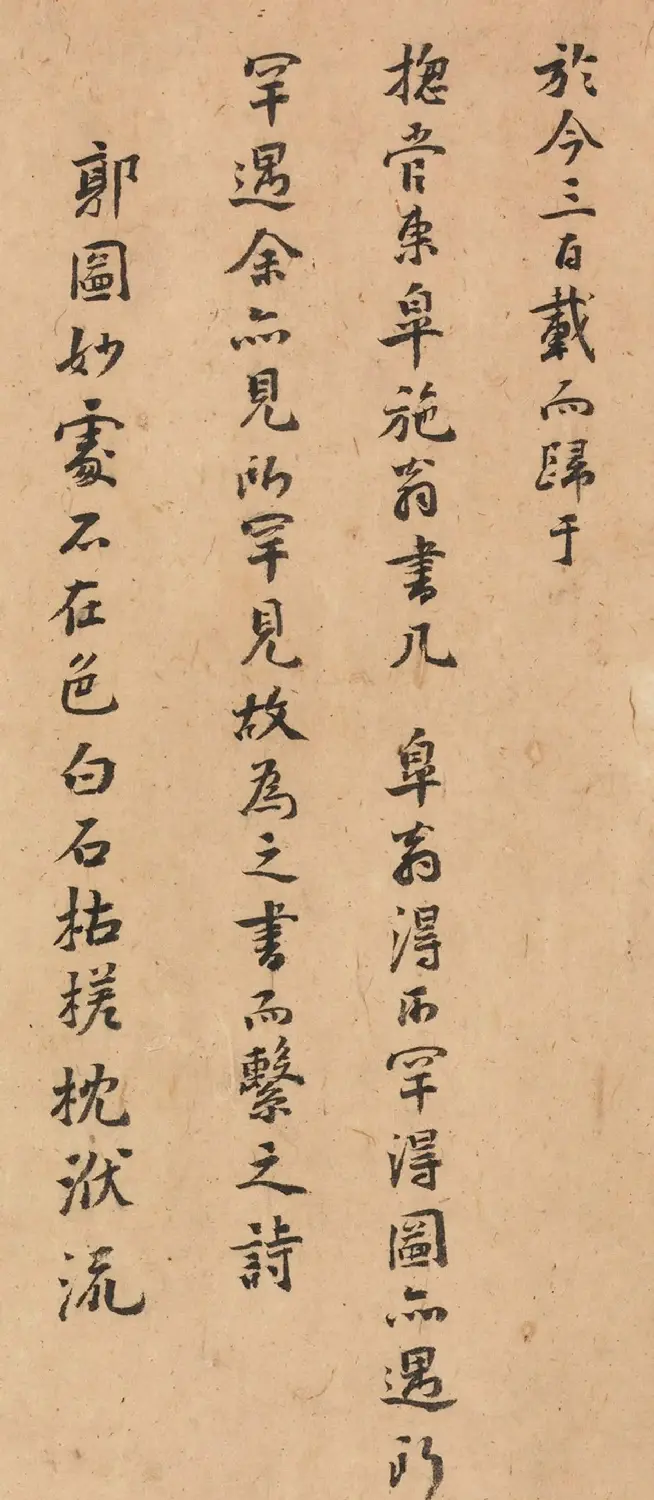 於今三百載而歸于
揔管東皐施翁書几 皐翁得所罕得圖亦遇所
罕遇余亦見所罕見故為之書而繫之詩
郭圖妙處不在色白石枯槎枕洑流